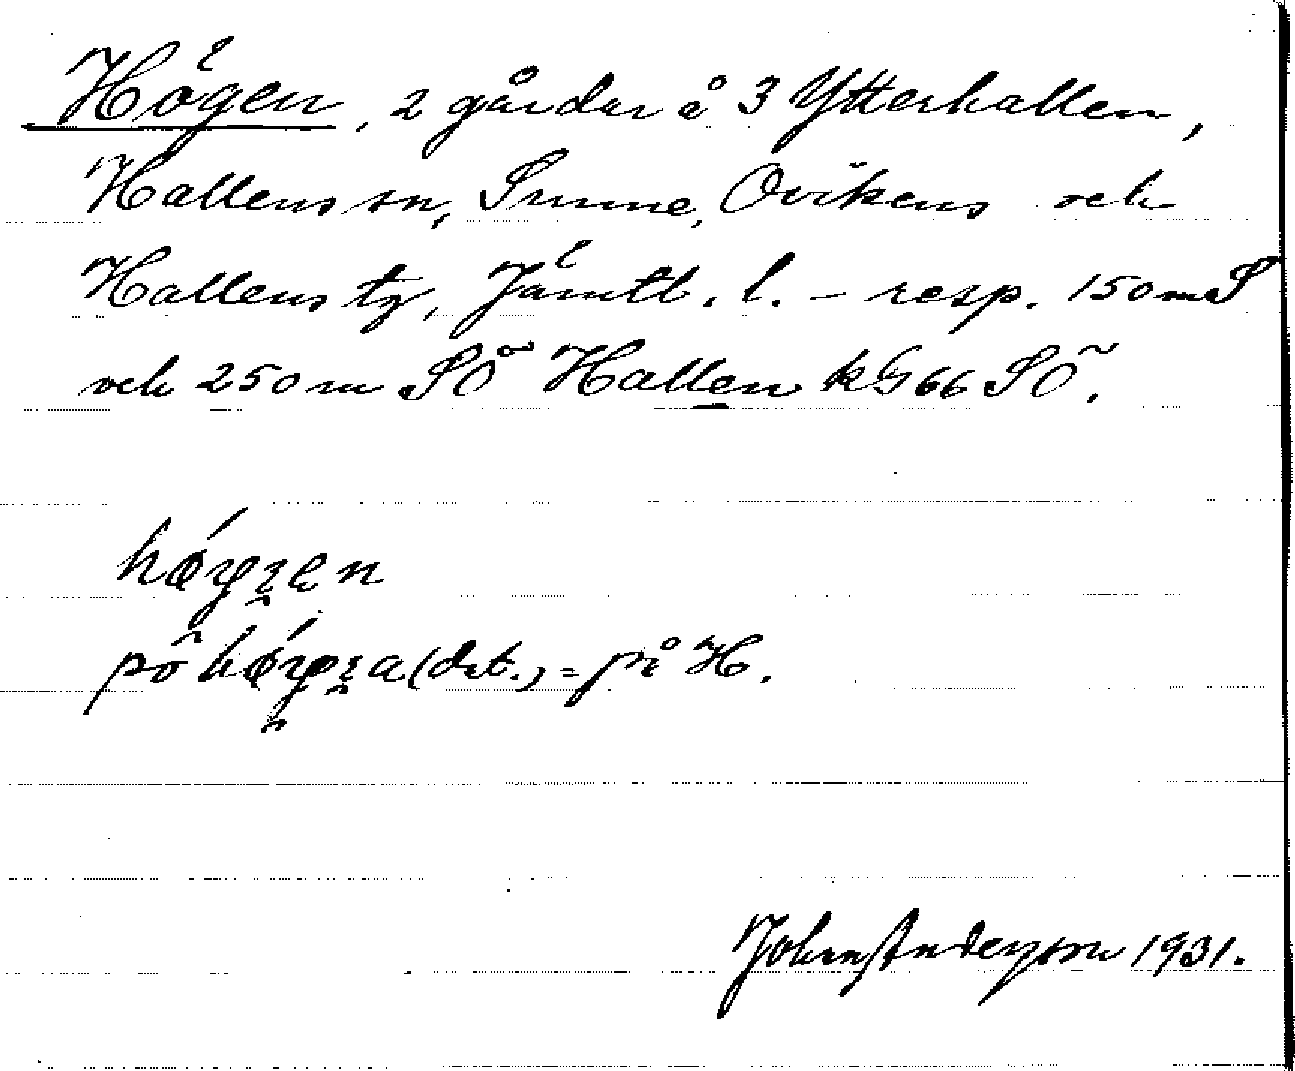 Högen, 2 gårdar å 3 Ytterhallen,
Hallens sn, Sunne, Ovikens och
Hallens tg, Jämtl. l. – resp. 150 m S
och 250 m SÖ Hallen k G66 SÖ.
pô (dat.) = på H.
John Anderson 1931.